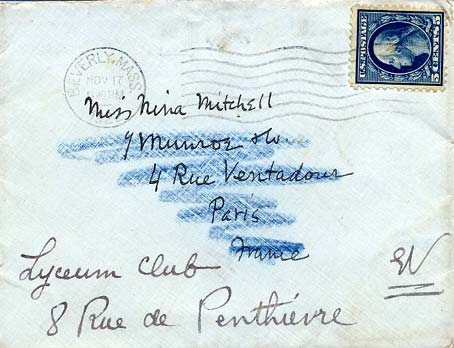 U.S. POSTAGE
5 CENTS 5
BEVERLY, MASS.
NOV 17
PM
Miss Nina Mitchell
Munroe &
4 Rue Ventadour
Paris
France
Lyceum Club
EV
8 Rue de Penthièvre